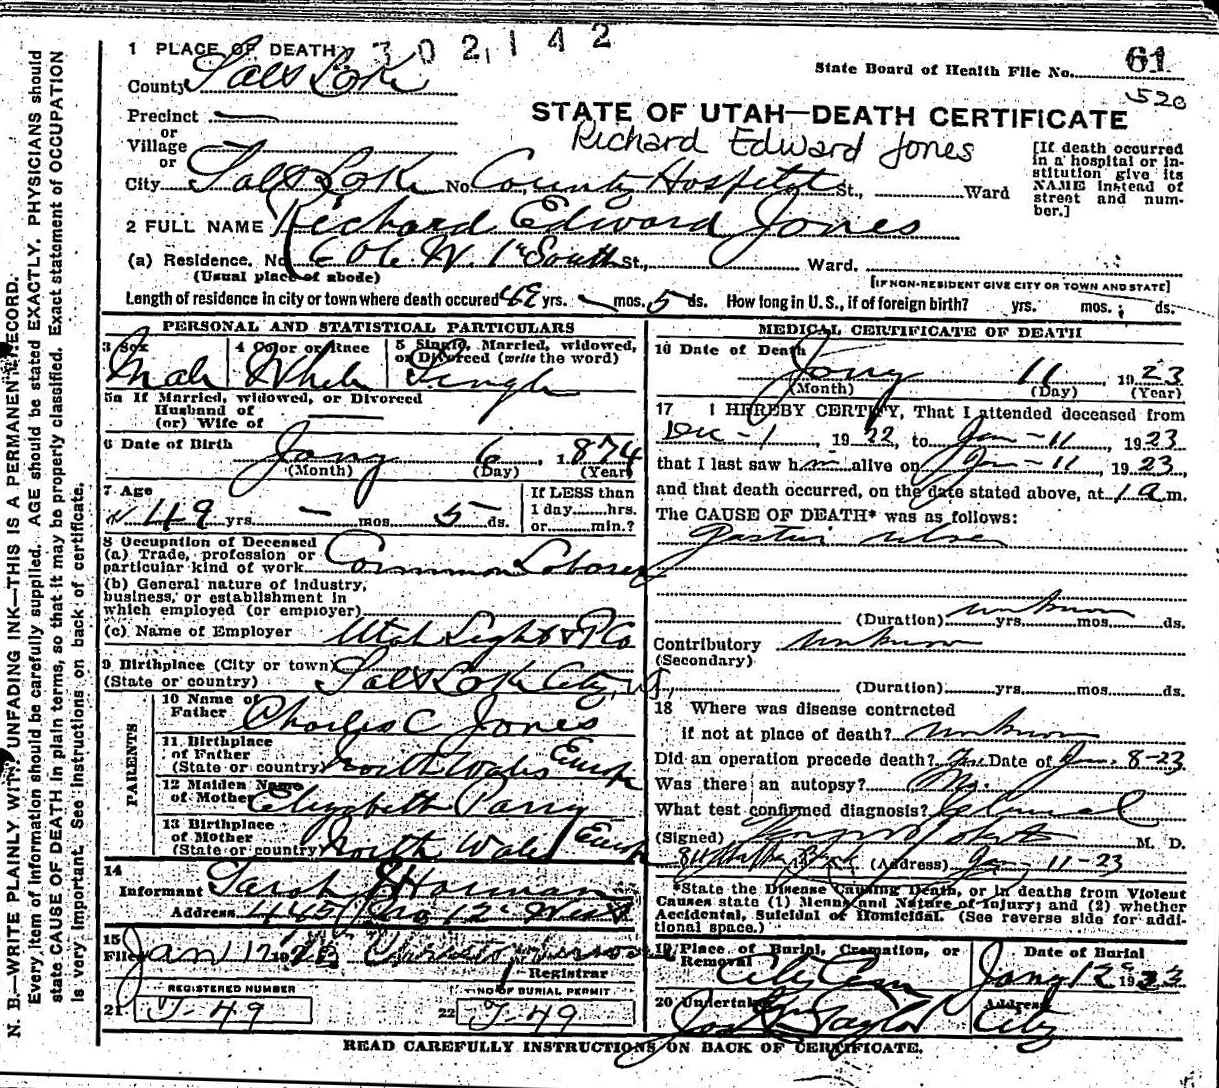 2302142
1 PLACE OF DEATH
County Salt Lake
State Board of Health File No. 61
520
STATE OF UTAH—DEATH CERTIFICATE
Richard Edward Jones
Precinct —
or
Village —
or
City Salt Lake No. County Hospital St., Ward
[If death occurred in a hospital or institution give its NAME instead of street and number.]
2 FULL NAME Richard Edward Jones
(a) Residence. No. 606 W. 1st South St., Ward.
(Usual place of abode)
[IF NON-RESIDENT GIVE CITY OR TOWN AND STATE]
Length of residence in city or town where death occured 49 yrs. — mos. 5 ds. How long in U.S., if of foreign birth? yrs. mos. ds.
PERSONAL AND STATISTICAL PARTICULARS
3 Sex Male
4 Color or Race White
5 Single, Married, widowed, or Divorced (write the word) Single
5a If Married, widowed, or Divorced
Husband of
(or) Wife of —
6 Date of Birth Jany 6, 1874
(Month) (Day) (Year)
7 Age
49 yrs. — mos. 5 ds.
If LESS than
1 day hrs.
or min.?
8 Occupation of Deceased
(a) Trade, profession or
particular kind of work Common Laborer
(b) General nature of industry,
business, or establishment in
which employed (or employer)
(c) Name of Employer Utah Light & P Co
9 Birthplace (City or town)
(State or country) Salt Lake City, U.
PARENTS
10 Name of
Father Charles C Jones
11 Birthplace
of Father
(State or country) North Wales Europe
12 Maiden Name
of Mother Elizabeth Parry
13 Birthplace
of Mother
(State or country) North Wales Europe
14
Informant Sarah J Horman
Address
15
Filed Jan 12 1923
Registrar
REGISTERED NUMBER
21 J-49
NO OF BURIAL PERMIT
22 J-49
MEDICAL CERTIFICATE OF DEATH
16 Date of Death
Jany 11, 1923
(Month) (Day) (Year)
17 I HEREBY CERTIFY, That I attended deceased from
Dec - 1, 1922, to Jan - 11 1923
that I last saw him alive on Jan - 11, 1923,
and that death occurred, on the date stated above, at 1 a m.
The CAUSE OF DEATH* was as follows:
Gastric ulcer
unknown
(Duration) yrs. mos. ds.
Contributory unknown
(Secondary)
(Duration) yrs. mos. ds.
18 Where was disease contracted
if not at place of death? unknown
Did an operation precede death? Yes Date of Jan. 8-23
Was there an autopsy? No.
What test confirmed diagnosis? Clinical
(Signed) M. D.
(Address) Jan - 11-23
*State the Disease Causing Death, or in deaths from Violent Causes state (1) Means and Nature of Injury; and (2) whether Accidental, Suicidal or Homicidal. (See reverse side for additional space.)
19 Place of Burial, Cremation, or
Removal City Cem
Date of Burial
Jany 12 1923
20 Undertaker
Jos Wm Taylor
Address
City
READ CAREFULLY INSTRUCTIONS ON BACK OF CERTIFICATE.
N. B.—WRITE PLAINLY WITH UNFADING INK—THIS IS A PERMANENT RECORD.
Every item of information should be carefully supplied. AGE should be stated EXACTLY. PHYSICIANS should
state CAUSE OF DEATH in plain terms, so that it may be properly classified. Exact statement of OCCUPATION
is very important. See instructions on back of certificate.